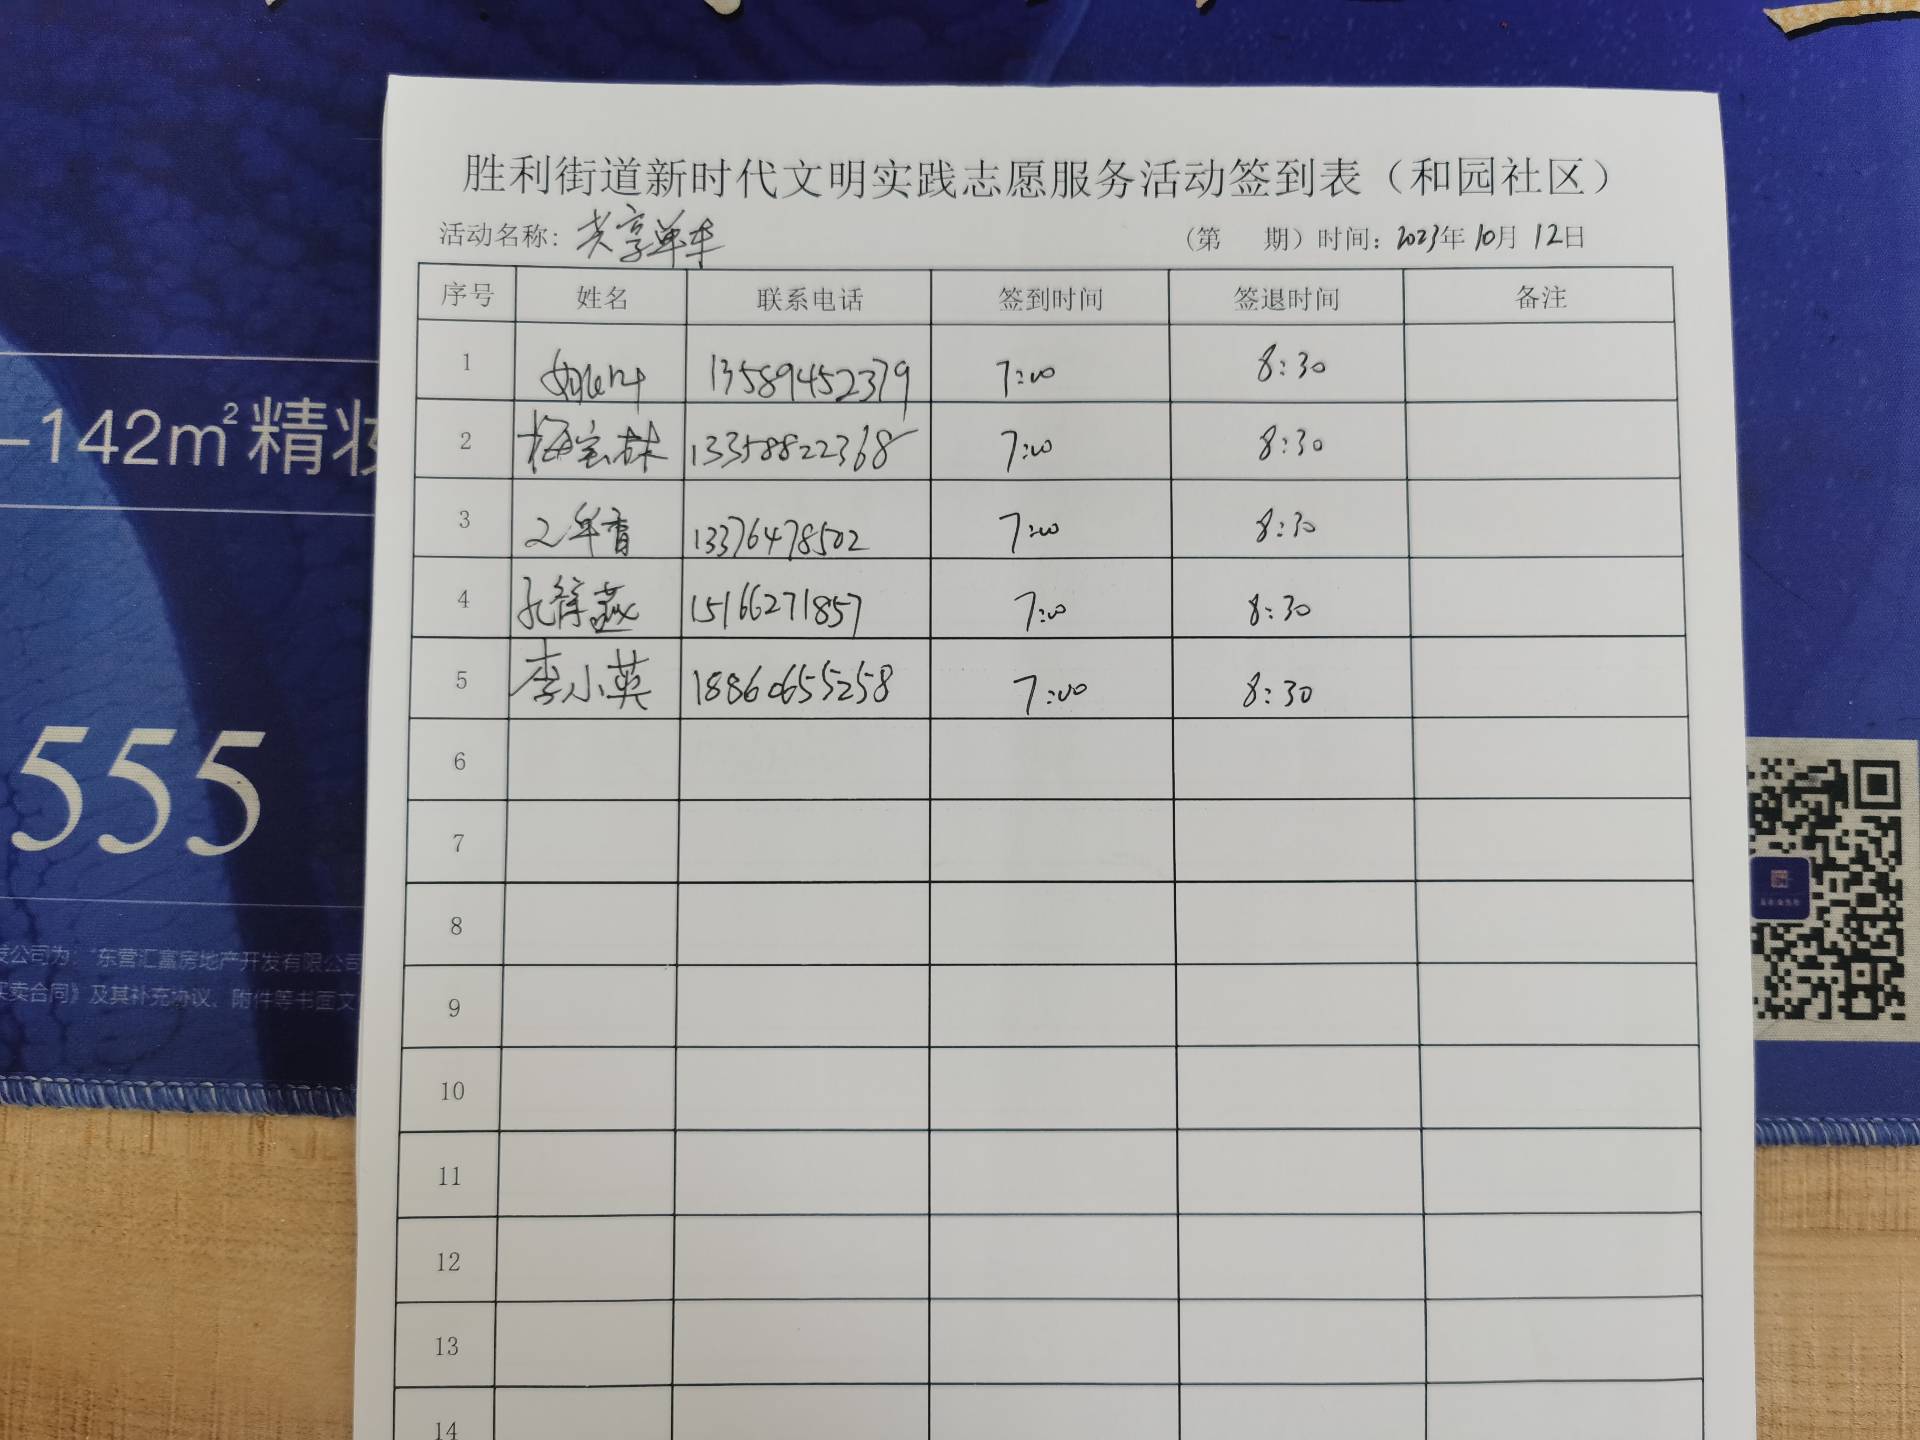 胜利街道新时代文明实践志愿服务活动签到表（和园社区）
活动名称: 共享单车 （第 期）时间: 2023年10月12日
序号 姓名 联系电话 签到时间 签退时间 备注
1 13589452379 7:00 8:30
2 梅宝林 13358822368 7:00 8:30
3 13376478502 7:00 8:30
4 孔祥燕 15166271857 7:00 8:30
5 李小英 18860655258 7:00 8:30
6
7
8
9
10
11
12
13
14
-142m²精妆
555
发公司为: "东营汇富房地产开发有限公司
买卖合同》及其补充协议、附件等书面文